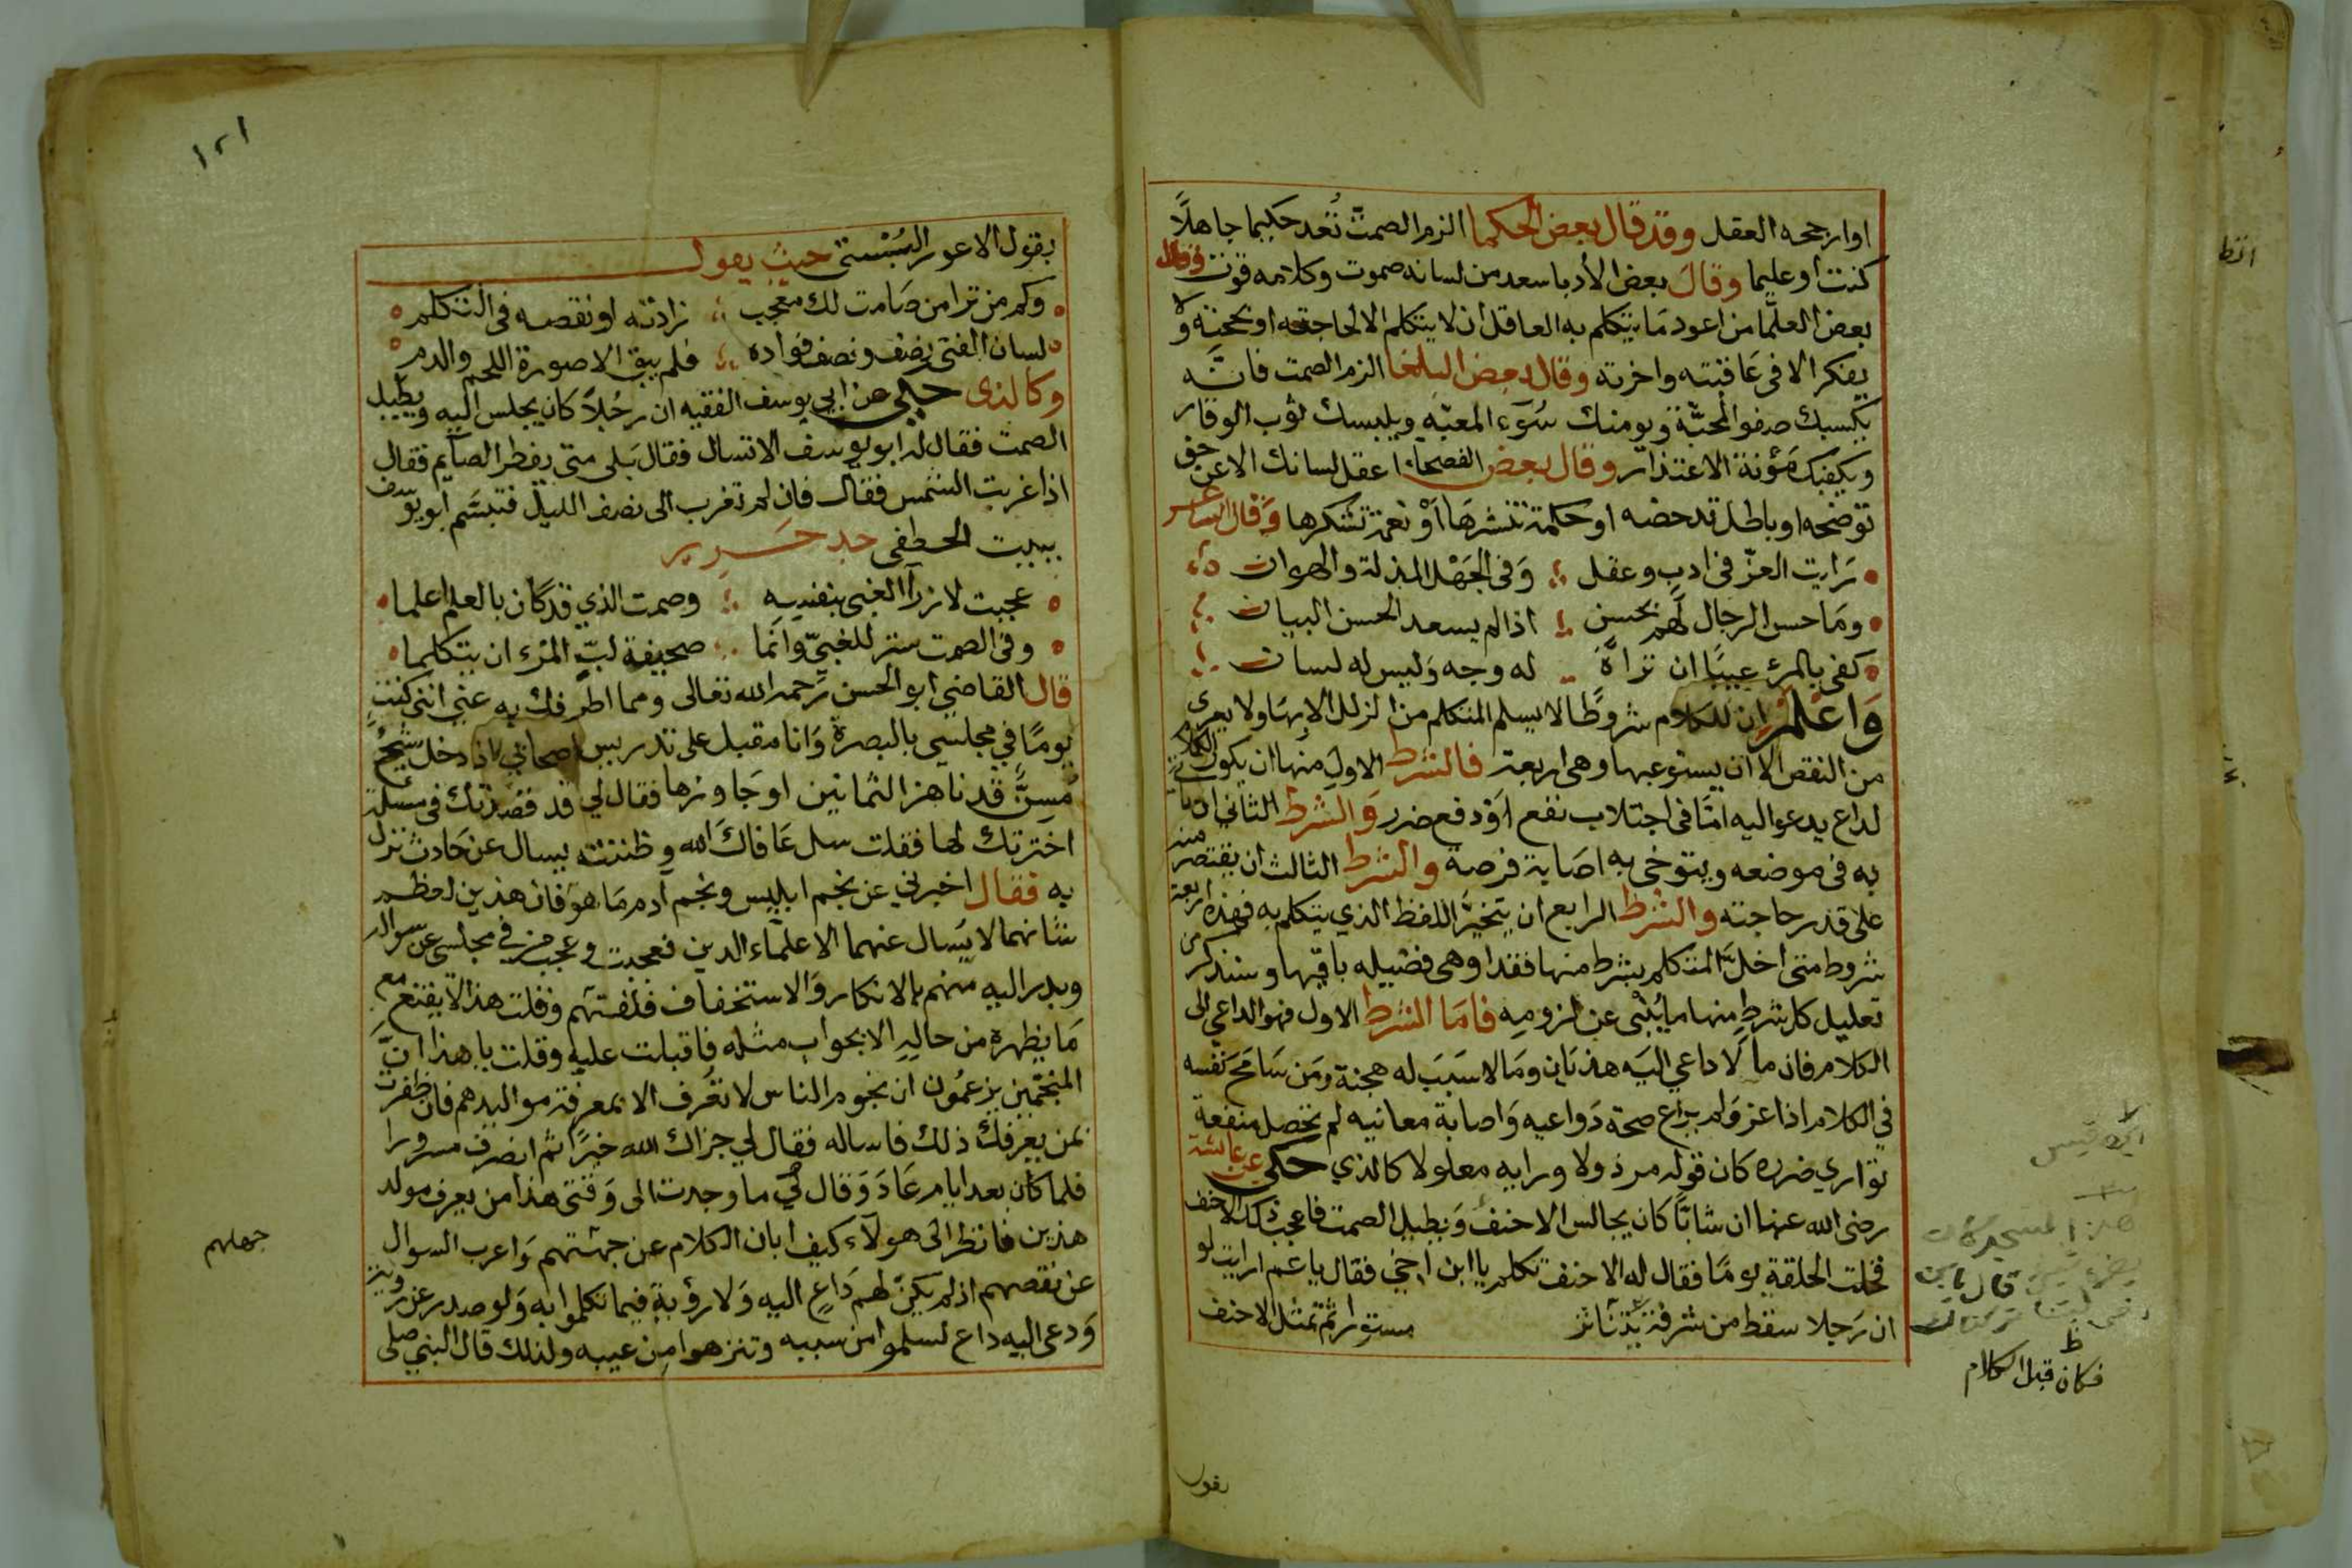 اوارجحه العقل وقد قال بعض الحكما الزم الصمت تُعد حكيما جاهلاً
كنت او عليما وقال بعض الأدبا سعد من لسانه صموت وكلامه قوت وقال
بعض العلما من اعود ما يتكلم به العاقل ان لا يتكلم الا لحاجته او بحجته ولا
يفكر الا في عاقبته واخرته وقال بعض البلغا الزم الصمت فانّه
يكسبك صفو المحبّة ويومنك سُوء المغبّه ويلبسك ثوب الوقار
ويكفيك مؤنة الاعتذار وقال بعض الفصحاء اعقل لسانك الا عن حق
توضحه او باطل تدحضه او حكمة تنشرها أوْ نعمة تشكرها وقال الشاعر
رايت العزّ في ادب وعقل وفي الجهل المذلة والهوان
وما حسن الرجال لهم بحسن اذا لم يسعد الحسن البيان
كفى بالمرء عيبًا ان تراهُ له وجه وليس له لسان
واعلم ان للكلام شروطًا لا يسلم المتكلم من الزلل الا بها ولا يعرى
من النقص الا ان يستوعبها وهي اربعة فالشرط الاول منها ان يكون الكلام
لداع يدعو اليه امّا في اجتلاب نفع أوْ دفع ضرر والشرط الثاني ان ياتي
به في موضعه ويتوخى به اصابة فرصة والشرط الثالث ان يقتصر منه
على قدر حاجته والشرط الرابع ان يتخيّر اللفظ الذي يتكلم به فهذه اربعة
شروط متى اخلّ المتكلم بشرط منها فقد اوهى فضيله باقيها وسنذكر من
تعليل كل شرط منها ما يُنْبى عن لزومه فاما الشرط الاول فهو الداعي الى
الكلام فان ما لا داعي اليه هذيان وما لا سبب له هجنة ومن سامح نفسه
في الكلام اذا عن ولم يراع صحة دواعيه واصابة معانيه لم تحصل منفعة
تواري ضرره كان قوله مرذولا ورايه معلولا كالذي حكي عن عائشة
رضي الله عنها ان شابّا كان يجالس الاحنف ويطيل الصمت فاعجب ذلك الاحنف
فخلت الحلقة يومًا فقال له الاحنف تكلم يا ابن اخي فقال يا عم ارايت لو
ان رجلا سقط من شرفة مستورا ثم تمثل الاحنف
قال يا بن
ظ
فكان قبل الكلام
يقول
١٢١
بقول الاعور البُسْتى حيث يقول
وكم من ترا من صامت لك معجب زادته او نقصه في التكلم
لسان الفتى نصف ونصف فواده فلم يبق الا صورة اللحم والدم
وكالذي حكي عن ابي يوسف الفقيه ان رجُلاً كان يجلس اليه ويطيل
الصمت فقال له ابو يوسف الا تسال فقال بَلى متى يفطر الصايم فقال
اذا غربت الشمس فقال فان لم تغرب الى نصف الليل فتبسّم ابو يوسف
ببيت الخطفى جد جرير
عجبت لازرآ الغبي بنفسه وصمت الذي قد كان بالعلم اعلما
وفي الصمت ستر للغبيّ وانما صحيفة لبّ المرء ان يتكلما
قال القاضي ابو الحسن رحمه الله تعالى ومما اطرفك به عني انني كنت
يومًا في مجلسي بالبصرة وانا مقبل على تدريس اصحابي اذ دخل شيخٌ
مُسِنٌّ قد ناهز الثمانين او جاوزها فقال لي قد قصدتك في مسئلة
اخترتك لها فقلت سل عافاك الله وظننته يسال عن حادث نزل
به فقال اخبرني عن نجم ابليس ونجم آدم ما هو فان هذين لعظم
شانهما لا يُسال عنهما الا علماء الدين فعجبت وعجب من في مجلسي عن سواله
وبدر اليه منهم بالانكار والاستخفاف فلفتهم وقلت هذا لا يقتنع مع
ما يظهره من حاله الا بجواب مثله فاقبلت عليه وقلت يا هذا انَّ
المنجّمين يزعمُون ان نجوم الناس لا تعُرف الا بمعرفة مواليدهم فان ظفرت
بمن يعرفك ذلك فاساله فقال لي جزاك الله خيرًا ثم انصرف مسرورا
فلما كان بعد ايام عاد وقال لي ما وجدت الى وقتى هذا من يعرف مولد
هذين فانظر الى هولآء كيف ابان الكلام عن جهتهم واعرب السوال
جهلهم
عن نقصهم اذ لم يكن لهم داعٍ اليه ولا رؤية فيما تكلموا به ولو صدر عن روية
ودعى اليه داع لسلموا من سببه وتنزهوا من عيبه ولذلك قال النبي صلى